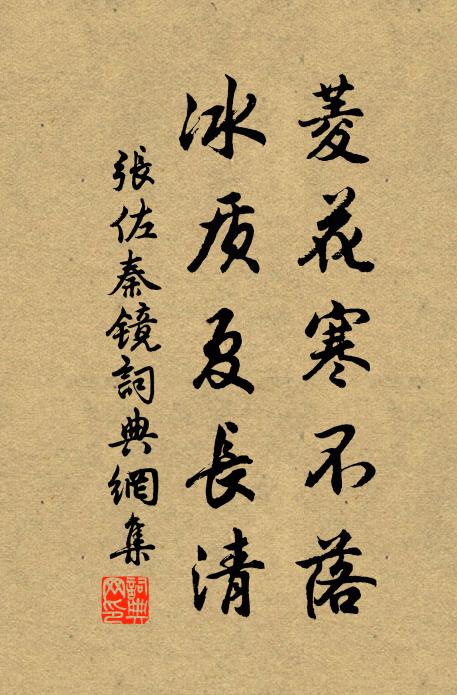 菱花寒不落
冰质夏長清
張佐秦镜詞典網集
詞典网印